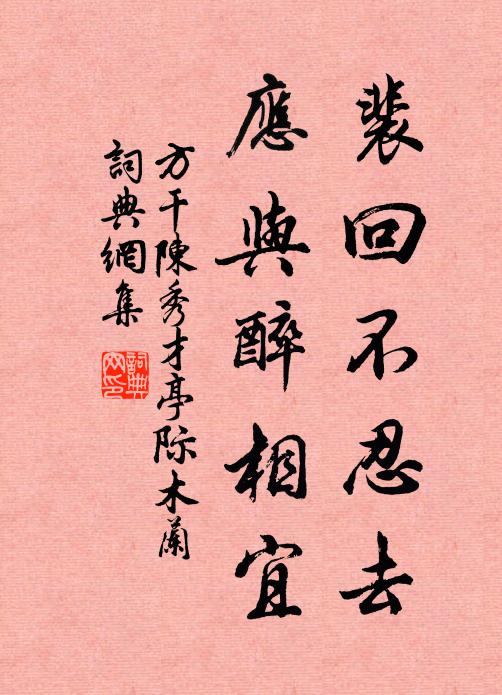 裴回不忍去
應與醉相宜
方干陳秀才亭际木蘭
詞典網集
詞典網印